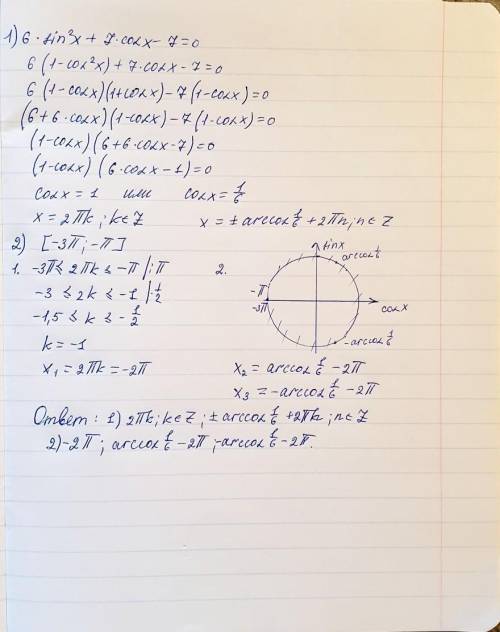 1) 6·sin²x + 7·cosx − 7 = 0
6(1−cos²x) + 7·cosx − 7 = 0
6(1−cosx)(1+cosx) − 7(1−cosx) = 0
(6+6·cosx)(1−cosx) − 7(1−cosx) = 0
(1−cosx)(6+6·cosx−7) = 0
(1−cosx)(6·cosx−1) = 0
cosx = 1 или cosx = 1/6
x = 2πk; k∈Z x = ±arccos 1/6 + 2πn; n∈Z
2) [−3π; −π]
1. −3π ≤ 2πk ≤ −π |:π
−3 ≤ 2k ≤ −1 |·1/2
−1,5 ≤ k ≤ −1/2
k = −1
x₁ = 2πk = −2π
2.
sinx
arccos 1/6
−π
−3π
cosx
−arccos 1/6
x₂ = arccos 1/6 − 2π
x₃ = −arccos 1/6 − 2π
Ответ: 1) 2πk; k∈Z; ±arccos 1/6 + 2πn; n∈Z
2) −2π; arccos 1/6 − 2π; −arccos 1/6 − 2π.